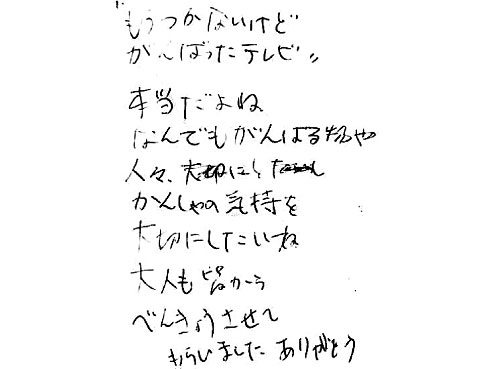 "もうつかないけど
がんばったテレビ"
本当だよね
なんでもがんばる物や
人々、
かんしゃの気持を
大切にしたいね
大人も皆から
べんきょうさせて
もらいました ありがとう